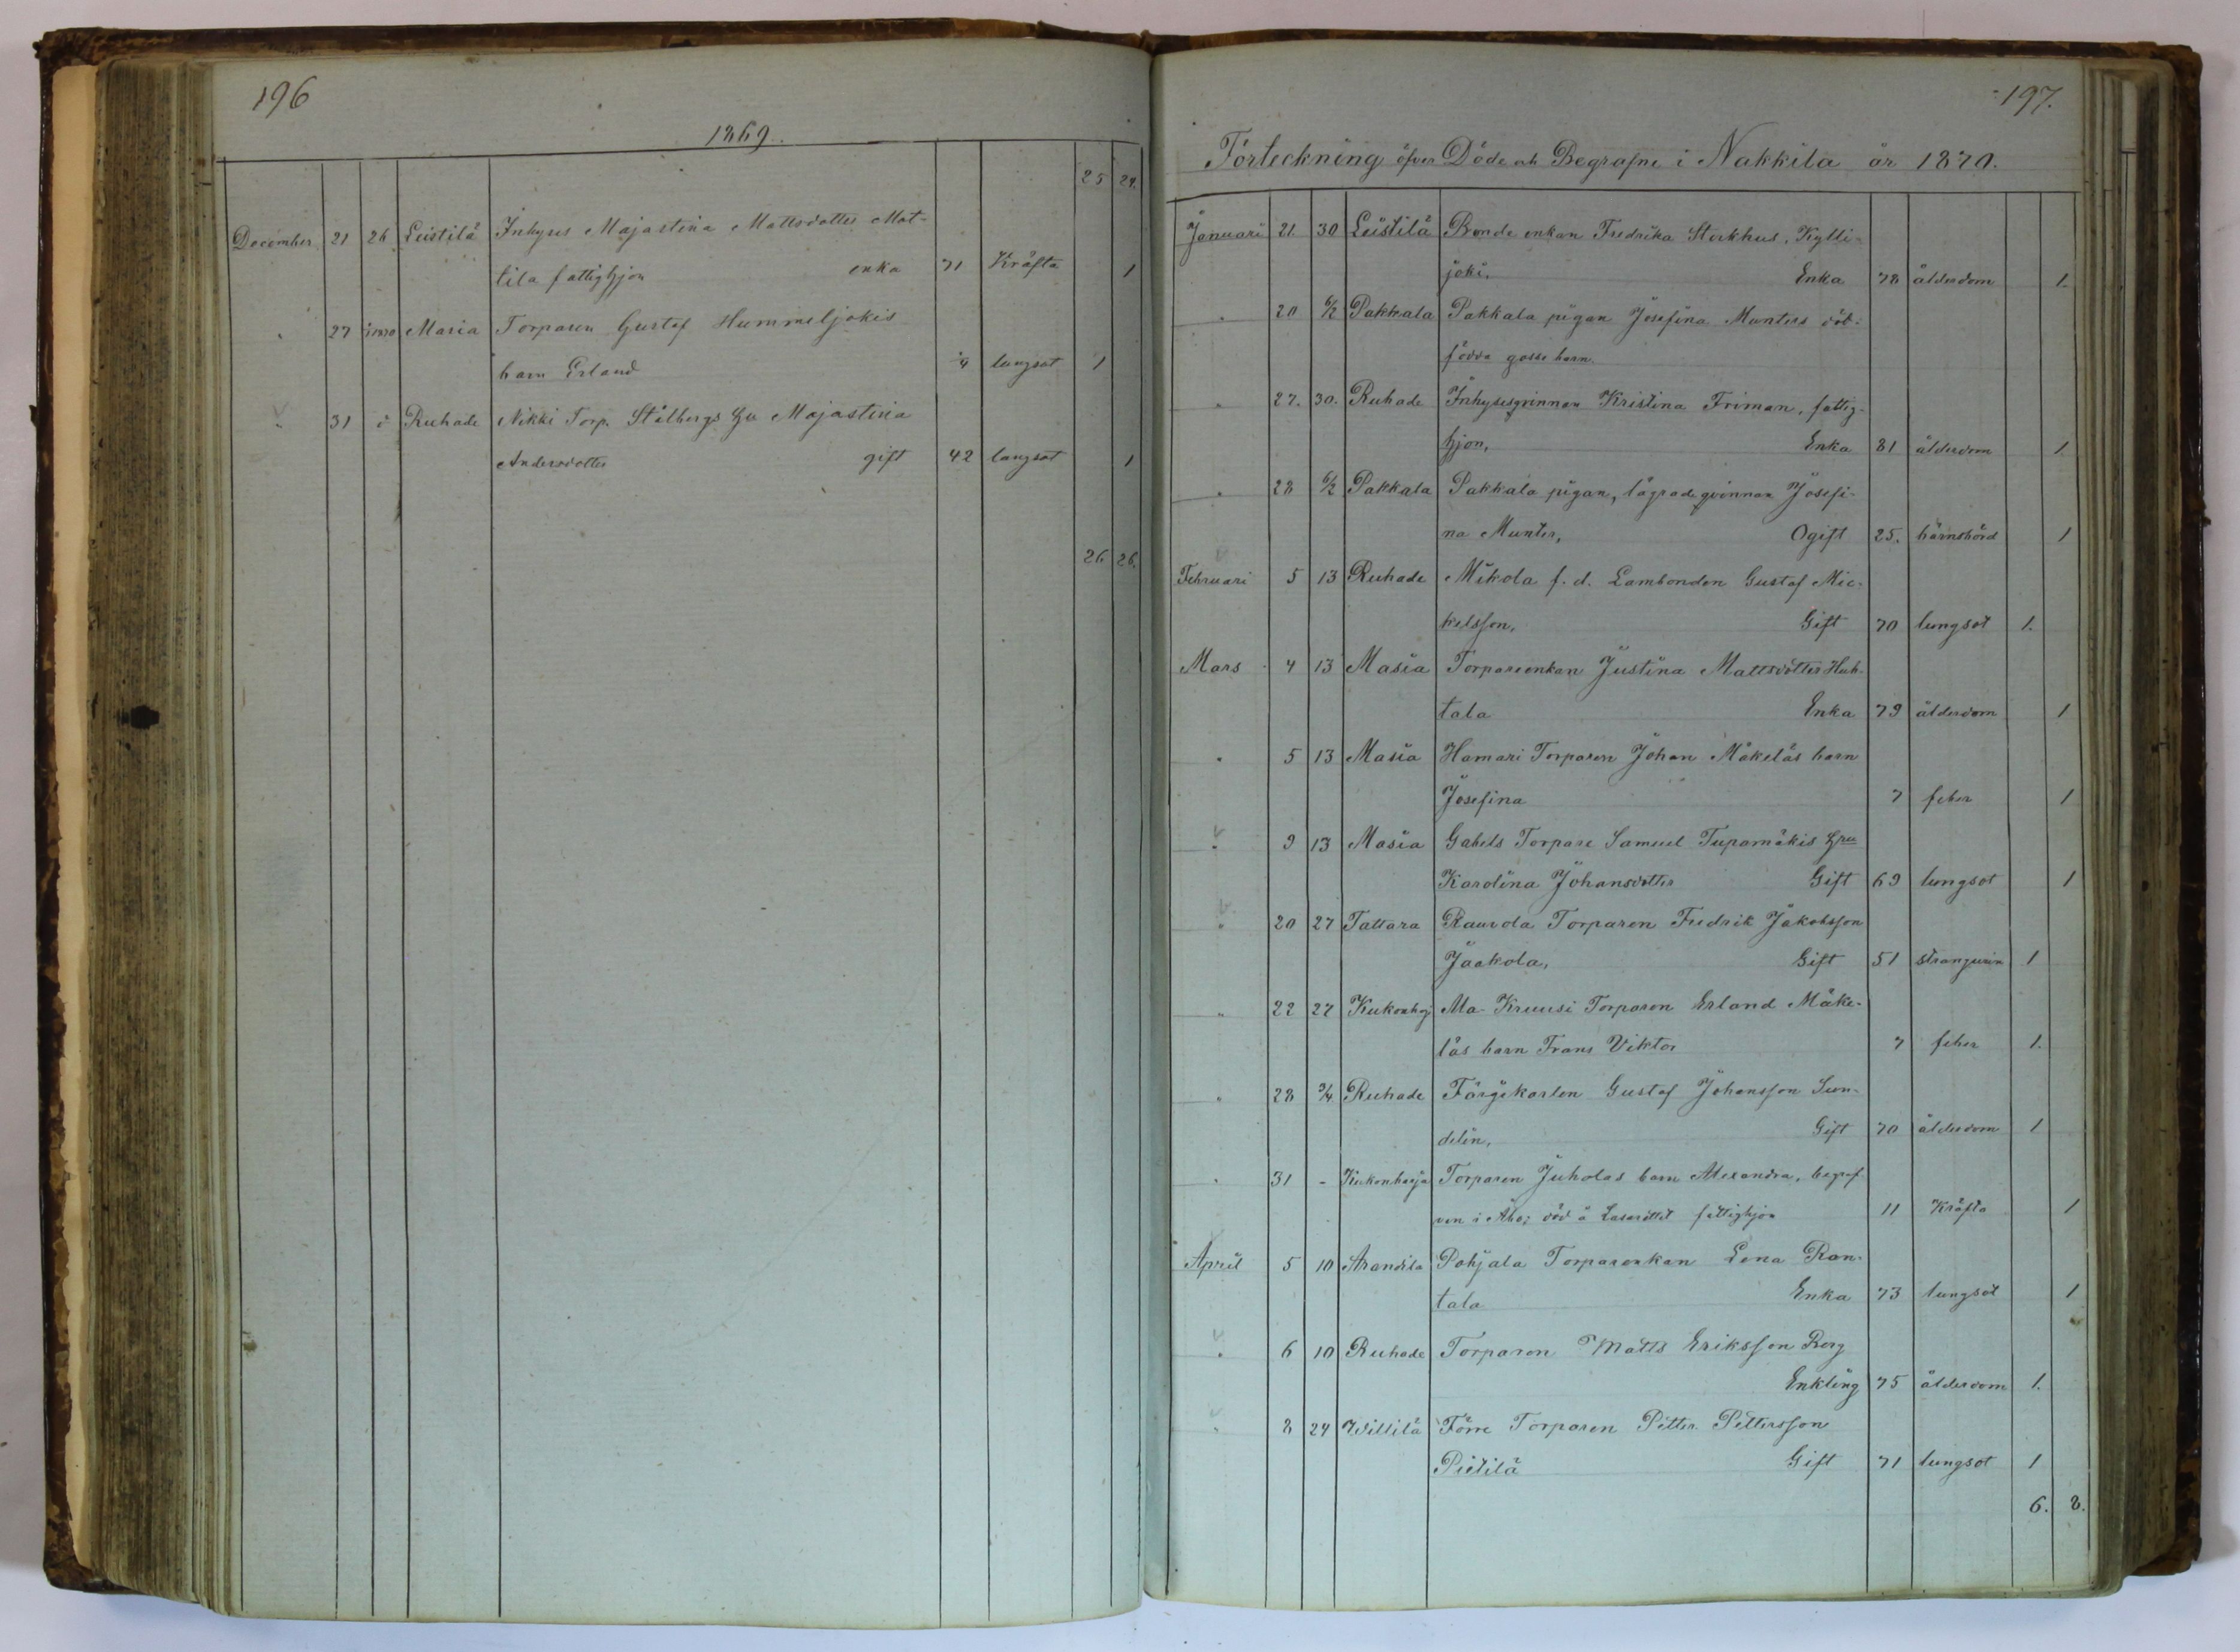 196
1869.
25 24.
December 21 26 Leistilä Inhyses Majastina Mattsdotter Mat-
tila fattighjon enka 71 Kräfta 1
" 27 Masia Torparen Gustaf Hummeljokis
barn Erland 1/4 lungsot 1
" 31 Ruhade Nikki Torp. Stålbergs hu Majastina
Andersdotter gift 42 lungsot 1
26 26.
197.
Förteckning öfver Döde och Begrafne i Nakkila år 1870.
Januari 21. 30 Leistilä Bonde enkan Fredrika Storkhus, Kylli-
joki, Enka 78 ålderdom 1.
" 20 6/2 Pakkala Pakkala pigan Josefina Munters död-
födda gosse barn.
" 27. 30. Ruhade Inhysesqvinnan Kristina Friman, fattig-
hjon, Enka 81 ålderdom 1
" 28 6/2 Pakkala Pakkala pigan, lägrade qvinnan Josefi-
na Munter, Ogift 25. barnsbörd 1
Februari 5 13 Ruhade Mikola f. d. Lambonden Gustaf Mic-
kelsson, Gift 70 lungsot 1.
Mars 4 13 Masia Torpareenkan Justina Mattsdotter Huh-
tala Enka 79 ålderdom 1
" 5 13 Masia Hamari Torparen Johan Mäkeläs barn
Josefina 7 feber 1
" 9 13 Masia Gabels Torpare Samuel Tupamäkis hru
Karolina Johansdotter Gift 69 lungsot 1
" 20 27 Tattara Raurola Torparen Fredrik Jakobsson
Jaakola, Gift 51 strangurin 1
" 22 27 Kukonhj Ma-Kruusi Torparen Erland Mäke-
läs barn Frans Viktor 7 feber 1.
" 28 3/4 Ruhade Färgekarlen Gustaf Johansson Sun-
delin, Gift 70 ålderdom 1
" 31 - Kukonharja Torparen Juholas barn Alexandra, begraf-
ven i Åbo; död å Lasarettet fattighjon 11 Kräfta 1
April 5 10 Arandila Pohjala Torparenkan Lena Ran-
tala Enka 73 lungsot 1
" 6 10 Ruhade Torparen Matts Eriksson Berg
Enkling 75 ålderdom 1.
" 8 24 Willilä Förre Torparen Petter Pettersson
Pietilä Gift 71 lungsot 1
6. 8.